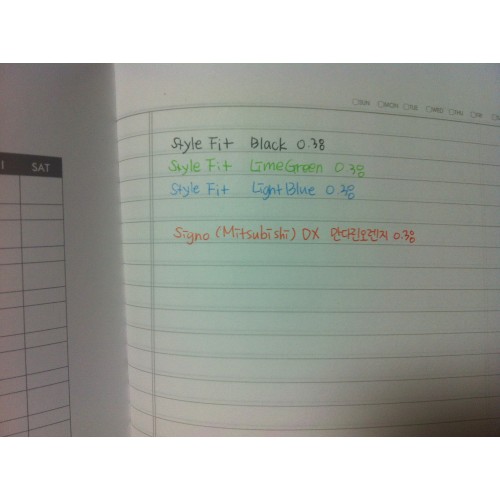 SUN MON TUE WED THU FRI
I SAT
Style Fit Black 0.38
Style Fit Lime Green 0.38
Style Fit Light Blue 0.38
Signo (Mitsubishi) DX 만다린오렌지 0.38